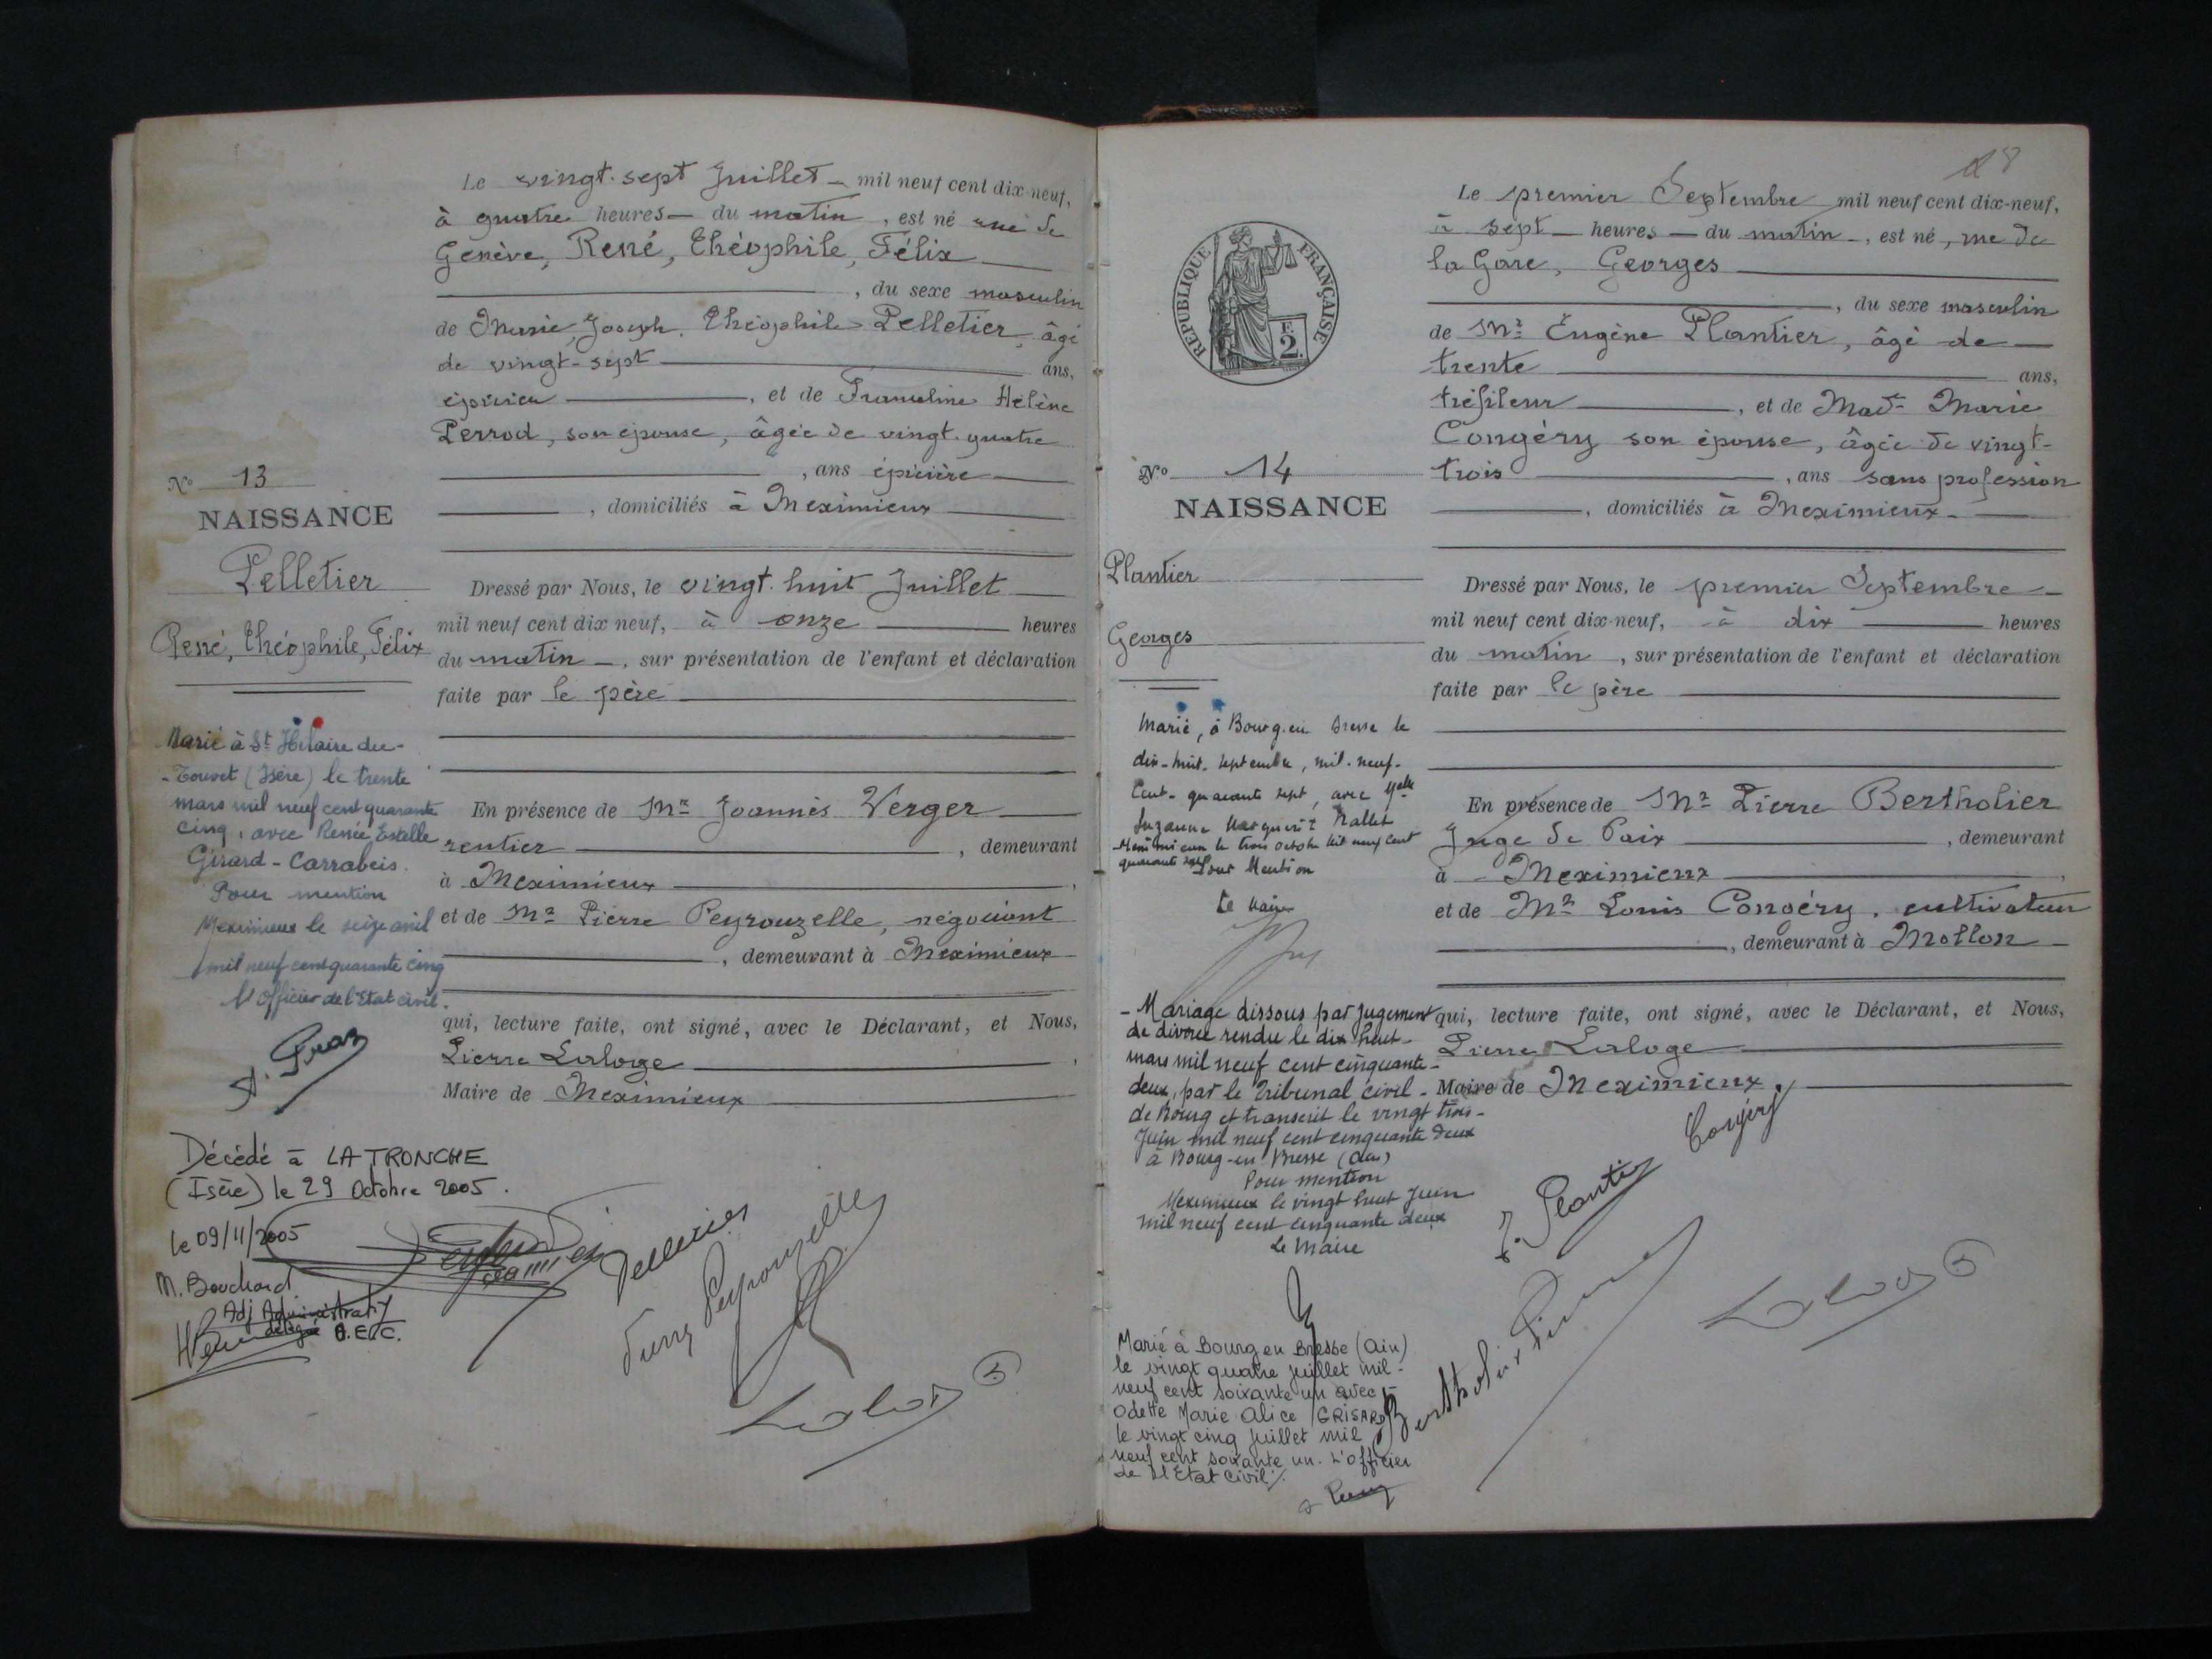 Le vingt-sept Juillet mil neuf cent dix-neuf,
à quatre heures du matin, est né rue de
Genève, René, Théophile, Félix
, du sexe masculin
de Marie, Joseph, Théophile Pelletier, âgé
de vingt-sept ans,
épicier, et de Françoline Hélène
Perrod, son épouse, âgée de vingt-quatre
, ans épicière
, domiciliés à Meximieux
No 13
NAISSANCE
Pelletier
René, Théophile, Félix
Dressé par Nous, le vingt-huit Juillet
mil neuf cent dix neuf, à onze heures
du matin, sur présentation de l'enfant et déclaration
faite par le père
En présence de Mr Joannès Verger
rentier, demeurant
à Meximieux,
et de Mr Pierre Peyrouzelle, négociant
, demeurant à Meximieux
qui, lecture faite, ont signé, avec le Déclarant, et Nous,
Pierre Laloge,
Maire de Meximieux
Marié à St Hilaire du-
-Touvet (Isère) le trente
mars mil neuf cent quarante
cinq, avec Renée Estelle
Girard-Carrabeis.
Pour mention
Meximieux le seize avril
mil neuf cent quarante cinq
L'Officier de l'Etat civil.
Décédé à LA TRONCHE
(Isère) le 29 Octobre 2005.
le 09/11/2005
M. Bouchard
Adj Administratif
délégué O.E.C.
Pelletier
Pierre Peyrouzelle
Laloge
28
Le premier Septembre mil neuf cent dix-neuf,
à sept heures du matin, est né, rue de
la Gare, Georges
, du sexe masculin
de Mr Eugène Plantier, âgé de
trente ans,
tréfileur, et de Made Marie
Congéry son épouse, âgée de vingt-
trois, ans sans profession
, domiciliés à Meximieux
RÉPUBLIQUE FRANÇAISE
F.
2.
No 14
NAISSANCE
Plantier
Georges
Dressé par Nous, le premier Septembre
mil neuf cent dix-neuf, à dix heures
du matin, sur présentation de l'enfant et déclaration
faite par le père
En présence de Mr Pierre Bertholier
Juge de Paix, demeurant
à Meximieux,
et de Mr Louis Congéry, cultivateur
, demeurant à Mollon
qui, lecture faite, ont signé, avec le Déclarant, et Nous,
Pierre Laloge
Maire de Meximieux.
Marié, à Bourg-en Bresse le
dix-huit septembre, mil-neuf-
Cent-quarante sept, avec Melle
Suzanne Marguerite Mallet
Meximieux le trois octobre mil neuf cent
quarante sept Pour Mention
Le Maire
- Mariage dissous par jugement
de divorce rendu le dix huit-
mars mil neuf cent cinquante-
deux, par le Tribunal civil-
de Bourg et transcrit le vingt trois-
Juin mil neuf cent cinquante deux
à Bourg-en Bresse (Ain)
Pour mention
Meximieux le vingt huit Juin
mil neuf cent cinquante deux
Le Maire
Marié à Bourg en Bresse (Ain)
le vingt quatre juillet mil-
neuf cent soixante un avec
Odette Marie Alice GRISARD
le vingt cinq juillet mil
neuf cent soixante un. L'officier
de l'Etat Civil.
Congéry
E. Plantier
Bertholier Pierre
Laloge